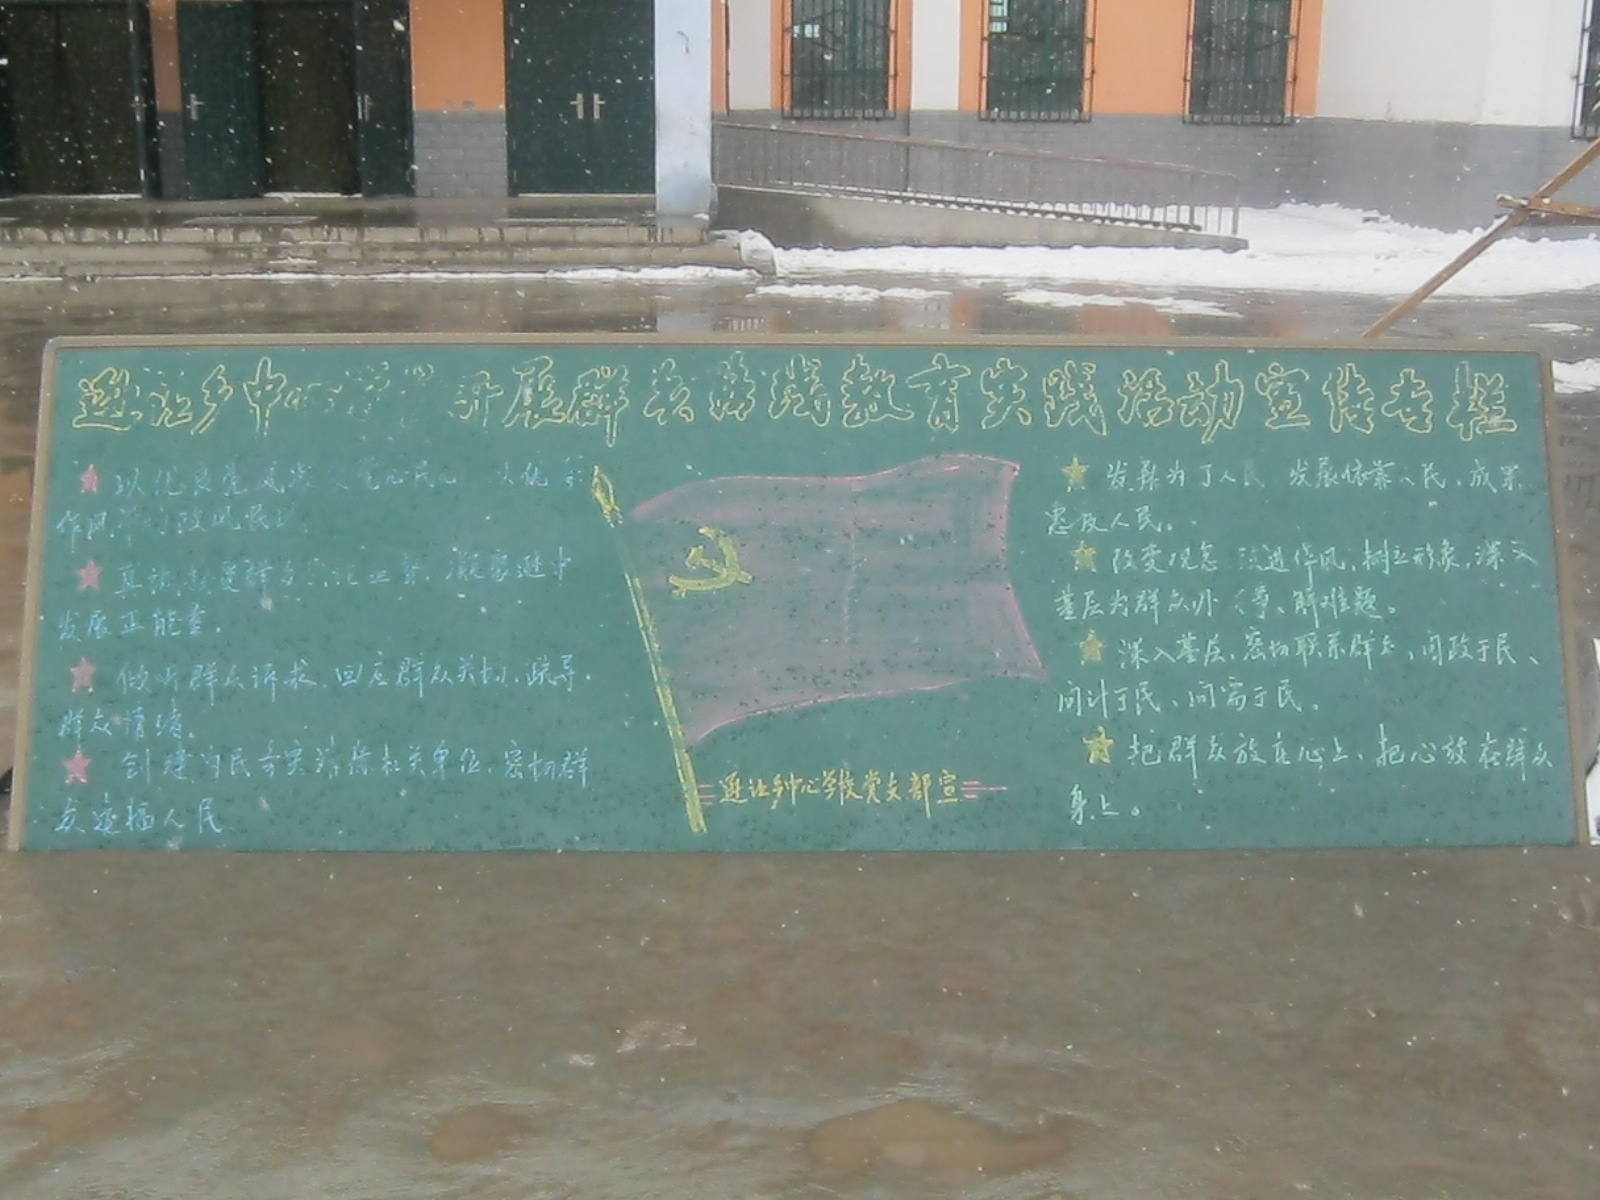 逊让乡中心学 开展群众路线教育实践活动宣传专栏
以优良党风 党心民心
作风 政风民
真 群众 凝聚逊中
发展正能量.
倾听群众诉求.回应群众关切,疏导.
群众情绪.
创建为民务实清廉机关单位.密切群
众造福人民
逊让乡中心学校党支部宣
发展为了人民 发展依靠人民,成果
惠及人民。
改变观念 改进作风,树立形象,深入
基层为群众办 事、解难题。
深入基层,密切联系群众,问政于民、
问计于民、问需于民。
把群众放在心上,把心放在群众
身上。